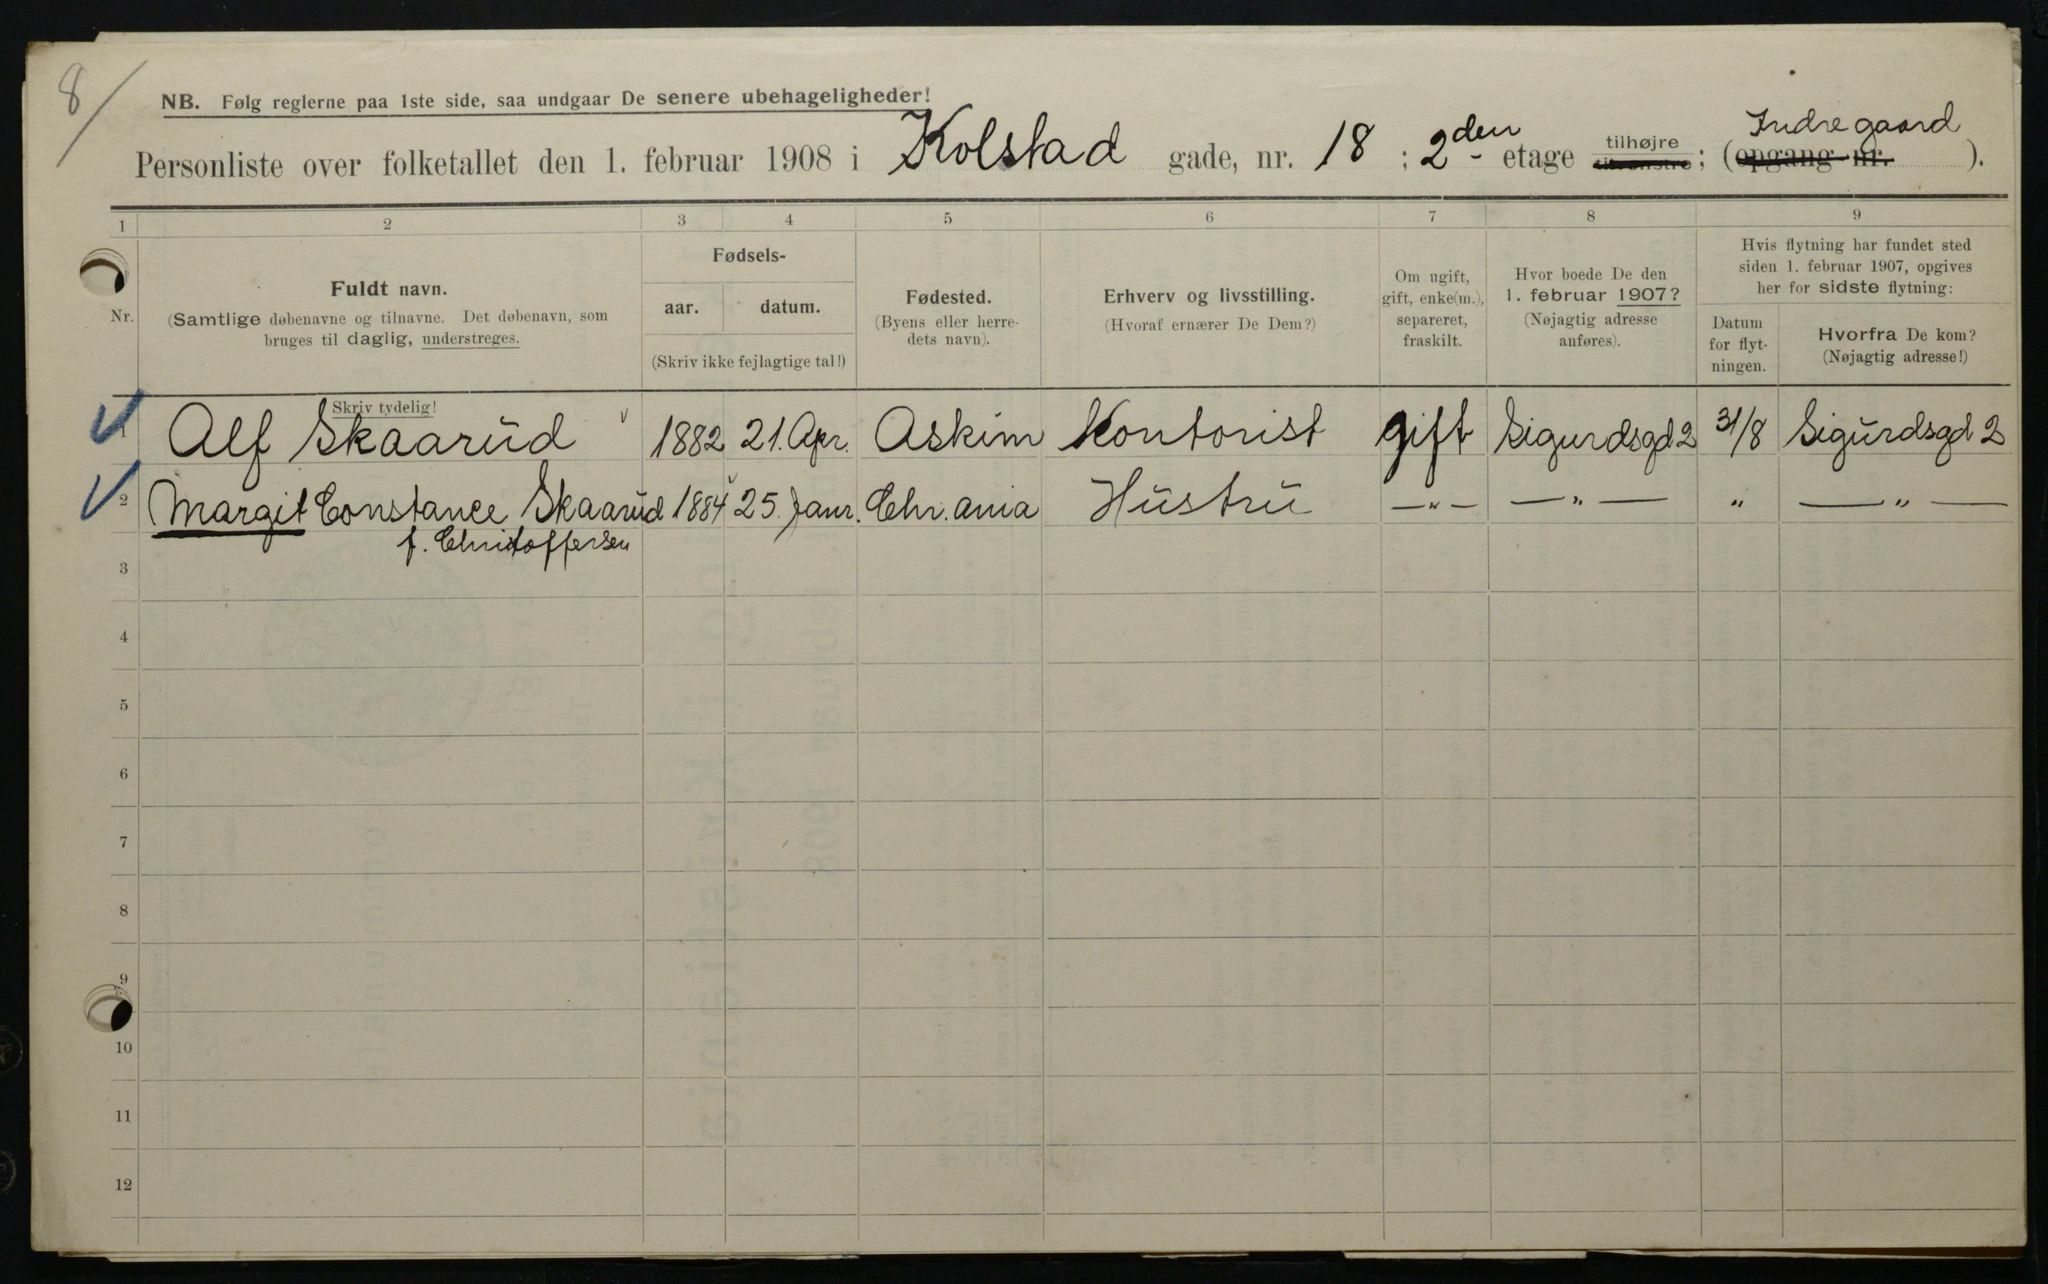 8/
NB. Følg reglerne paa 1ste side, saa undgaar De senere ubehageligheder!
Personliste over folketallet den 1. februar 1908 i Kolstad gade, nr. 18; 2den etage tilhøjre tilvenstre; (opgang nr. Indregaard).
1 2 3 4 5 6 7 8 9
Nr.
Fuldt navn.
(Samtlige døbenavne og tilnavne. Det døbenavn, som
bruges til daglig, understreges.
Fødsels-
aar. datum.
(Skriv ikke fejlagtige tal!)
Fødested.
(Byens eller herre-
dets navn).
Erhverv og livsstilling.
(Hvoraf ernærer De Dem?)
Om ugift,
gift, enke(m.),
separeret,
fraskilt.
Hvor boede De den
1. februar 1907?
(Nøjagtig adresse
anføres).
Hvis flytning har fundet sted
siden 1. februar 1907, opgives
her for sidste flytning:
Datum
for flyt-
ningen.
Hvorfra De kom?
(Nøjagtig adresse!)
Skriv tydelig!
1 Alf Skaarud 1882 21. Apr. Askim Kontorist gift Sigurdsgd 2 31/8 Sigurdsgd 2
2 Margit Constance Skaarud 1884 25. Janr. Chr.ania Hustru —„— —„— „ —„—
f. Christoffersen
3
4
5
6
7
8
9
10
11
12